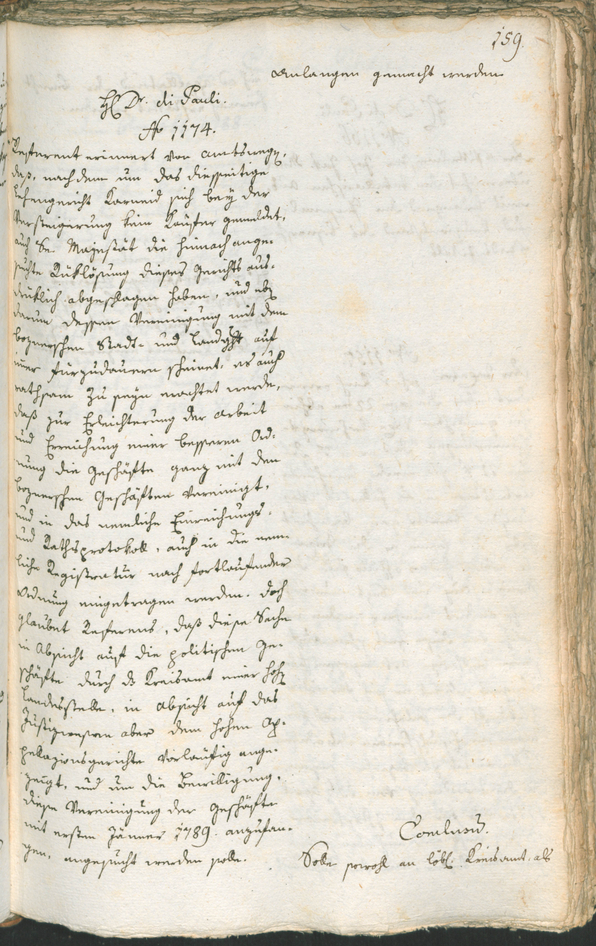 159.
Anlangen gemacht werden
H. Dr. di Pauli.
No 1174.
Referent erinnert von Amtswegen,
daß, nachdem um das diesseitige
Lehengericht Karneid sich bey der
Versteigerung kein Käufer gemeldet,
auf Se. Majestät die hernach ange-
suchte Ruklösung dieses Gerichts aus-
druklich abgeschlagen haben, und eben
darum dessen Vereinigung mit dem
boznerschen Stadt- und Landght auf
immer fürzudauern scheinet, es auch
rathsam zu seyn erachtet werde,
daß zur Erleichterung der Arbeit
und Erreichung einer besseren Ord-
nung die Geschäfte ganz mit den
boznerschen Geschäften vereinigt,
und in das nemliche Einreichungs-
und Rathsprotokoll, auch in die nem-
liche Registratur nach fortlaufender
Ordnung eingetragen werden. Doch
glaubet Referens, daß diese Sache
in Absicht auf die politischen Ge-
schäfte durch das Kreisamt einer hohen
Landesstelle, in Absicht auf das
Justizwesen aber dem hohen Ap-
pellazionsgerichte vorläufig ange-
zeugt, und um die Bewilligung,
diese Vereinigung der Geschäfte
mit ersten Jänner 1789. anzufan-
gen, angesucht werden solle.
Conclusum.
Solle sowohl an löbl. Kreisamt, als